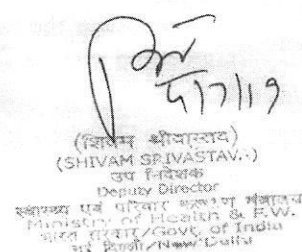 5/7/19
(शिवम श्रीवास्तव)
(SHIVAM SRIVASTAV..)
उप निदेशक
Deputy Director
स्वास्थ्य एवं परिवार कल्याण मंत्रालय
Ministry of Health & F.W.
भारत सरकार/Govt. of India
नई दिल्ली/New Delhi